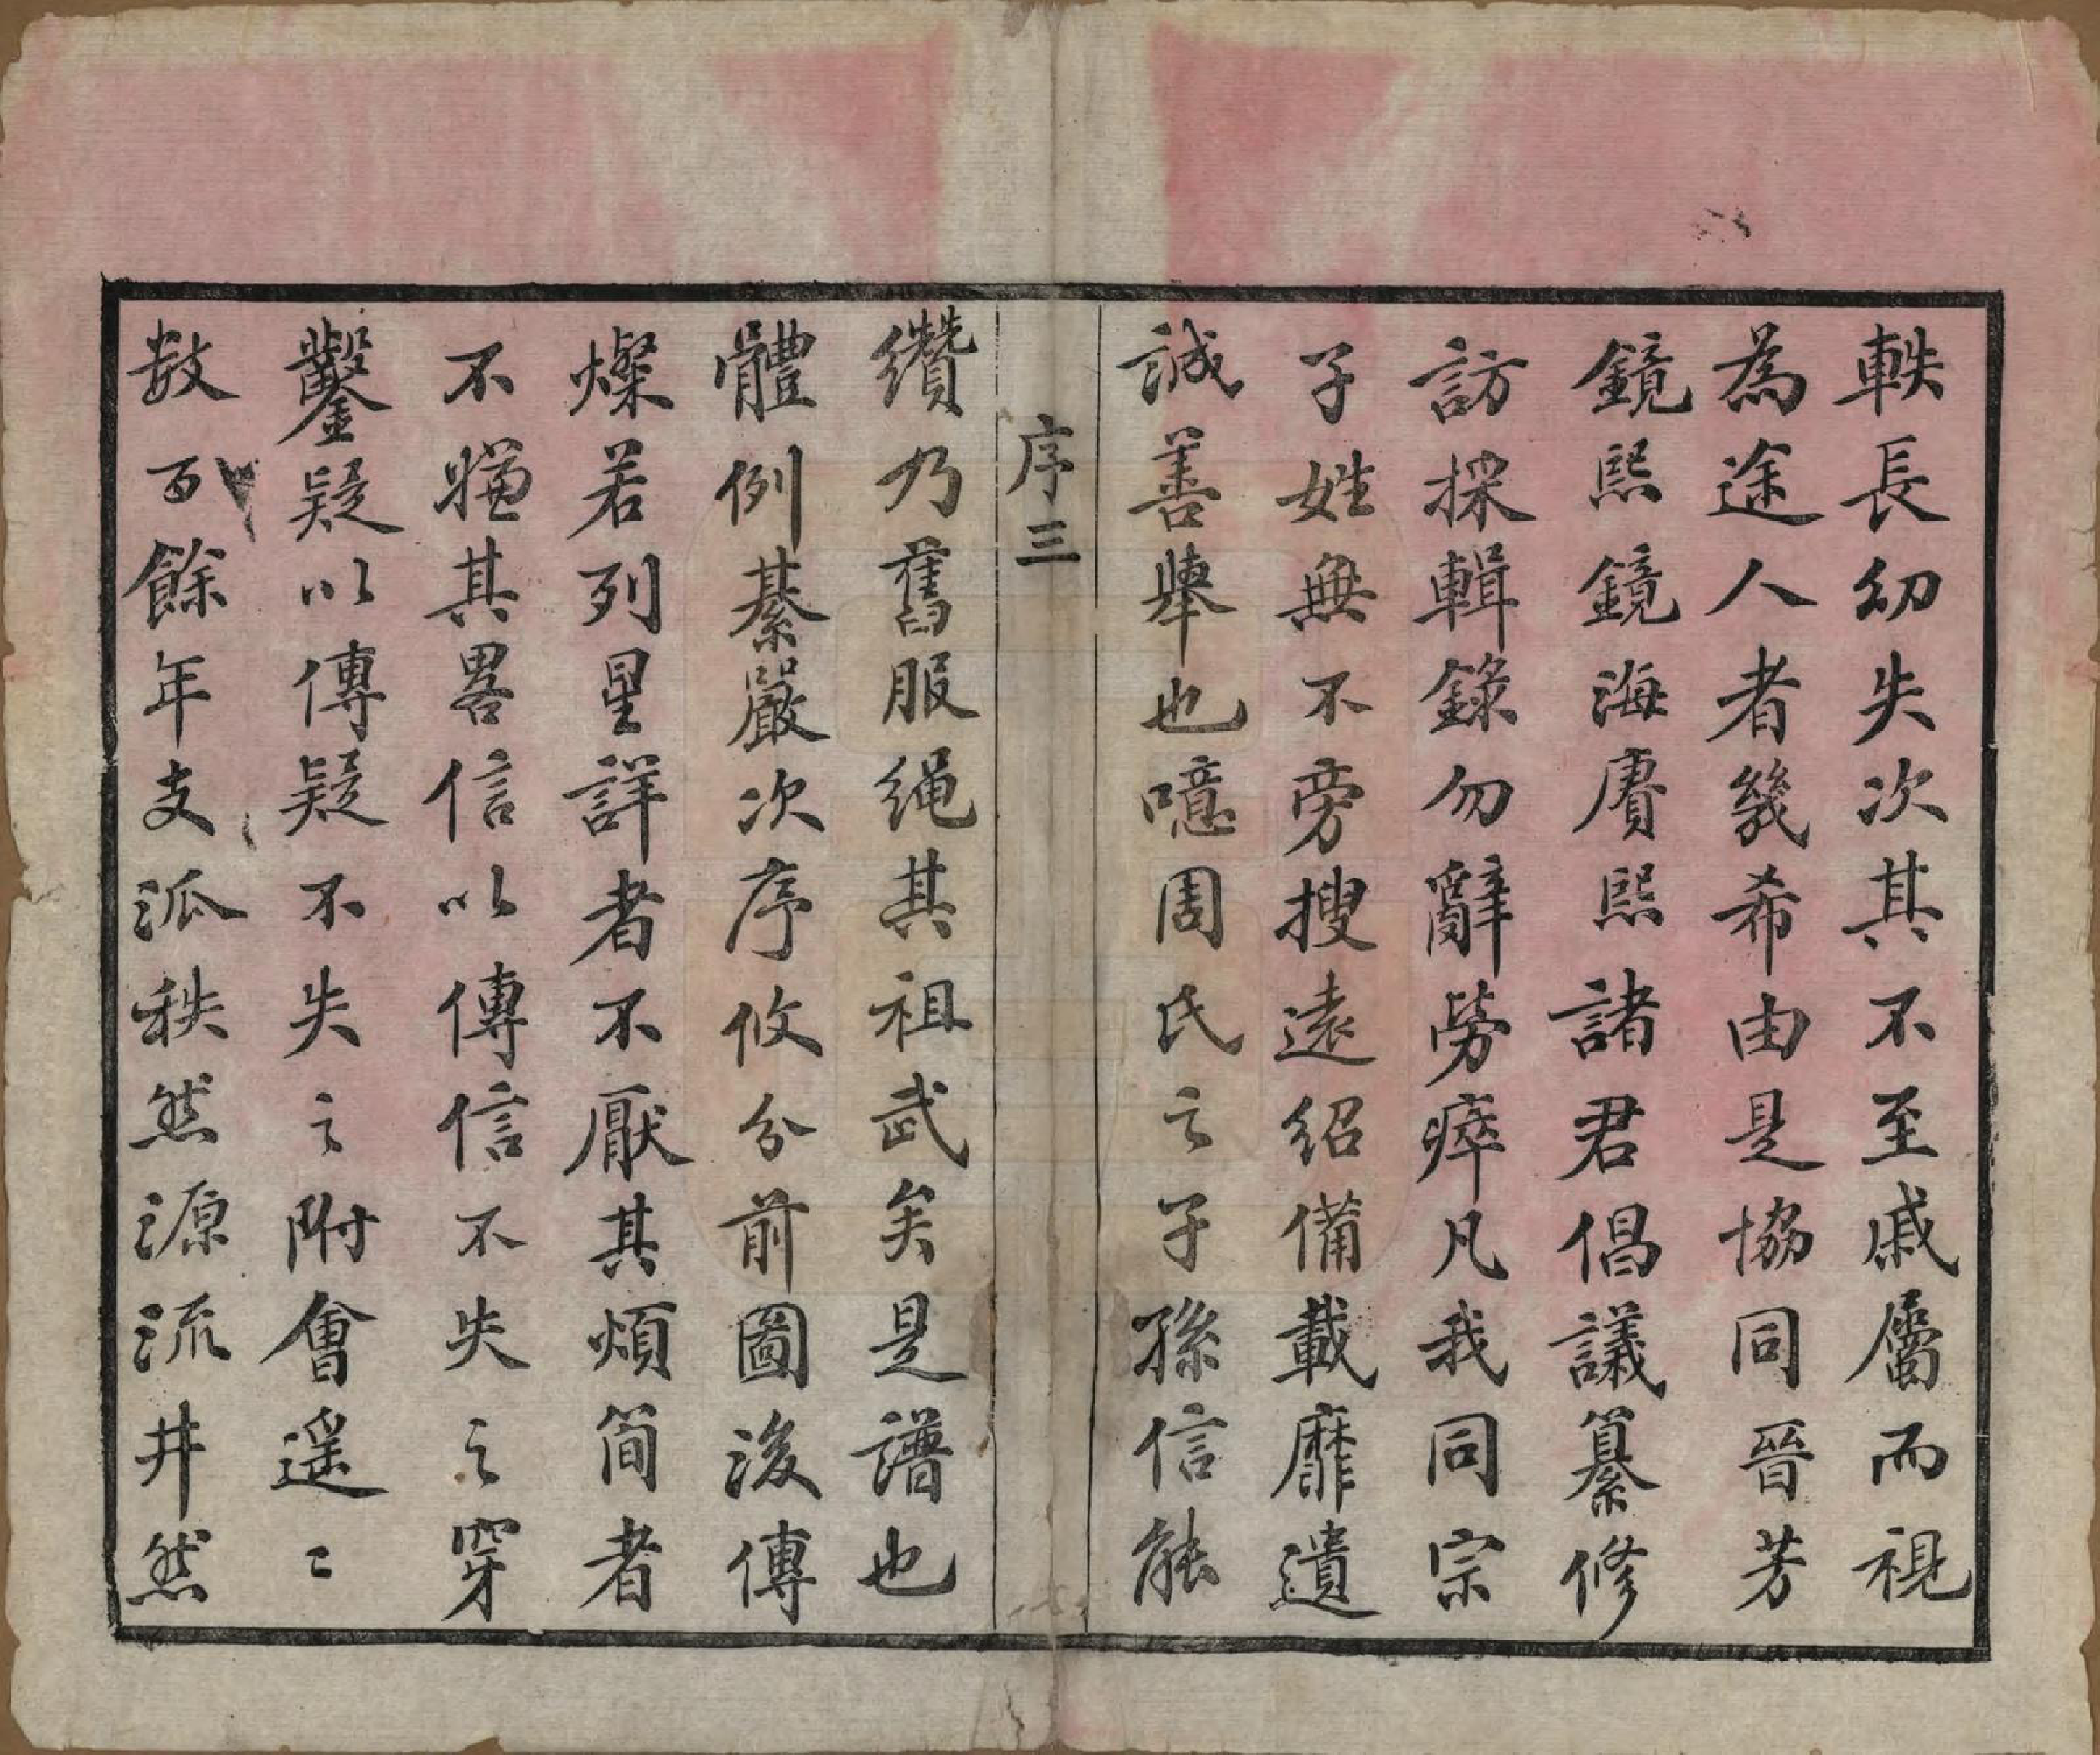 軼長幼失次其不至戚屬而視
為途人者幾希由是協同晉芳
鏡熙鏡海賡熙諸君倡議纂修
訪採輯錄勿辭勞瘁凡我同宗
子姓無不旁搜遠紹備載靡遺
誠善舉也噫周氏之子孫信能
序三
纘乃舊服绳其祖武矣是譜也
體例綦嚴次序攸分前圖後傳
燦若列星詳者不厭其煩简者
不嫌其畧信以傳信不失之穿
鑿疑以傳疑不失之附會遥〻
数百餘年支派秩然源流井然